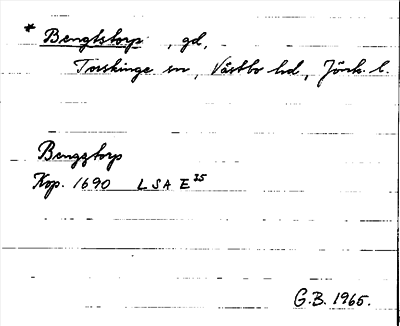 * Bengtstorp, gd,
Torskinge sn, Västbo hd, Jönk. l.
Bengztorp
Kop. 1690 LSA E 25
G.B. 1965.